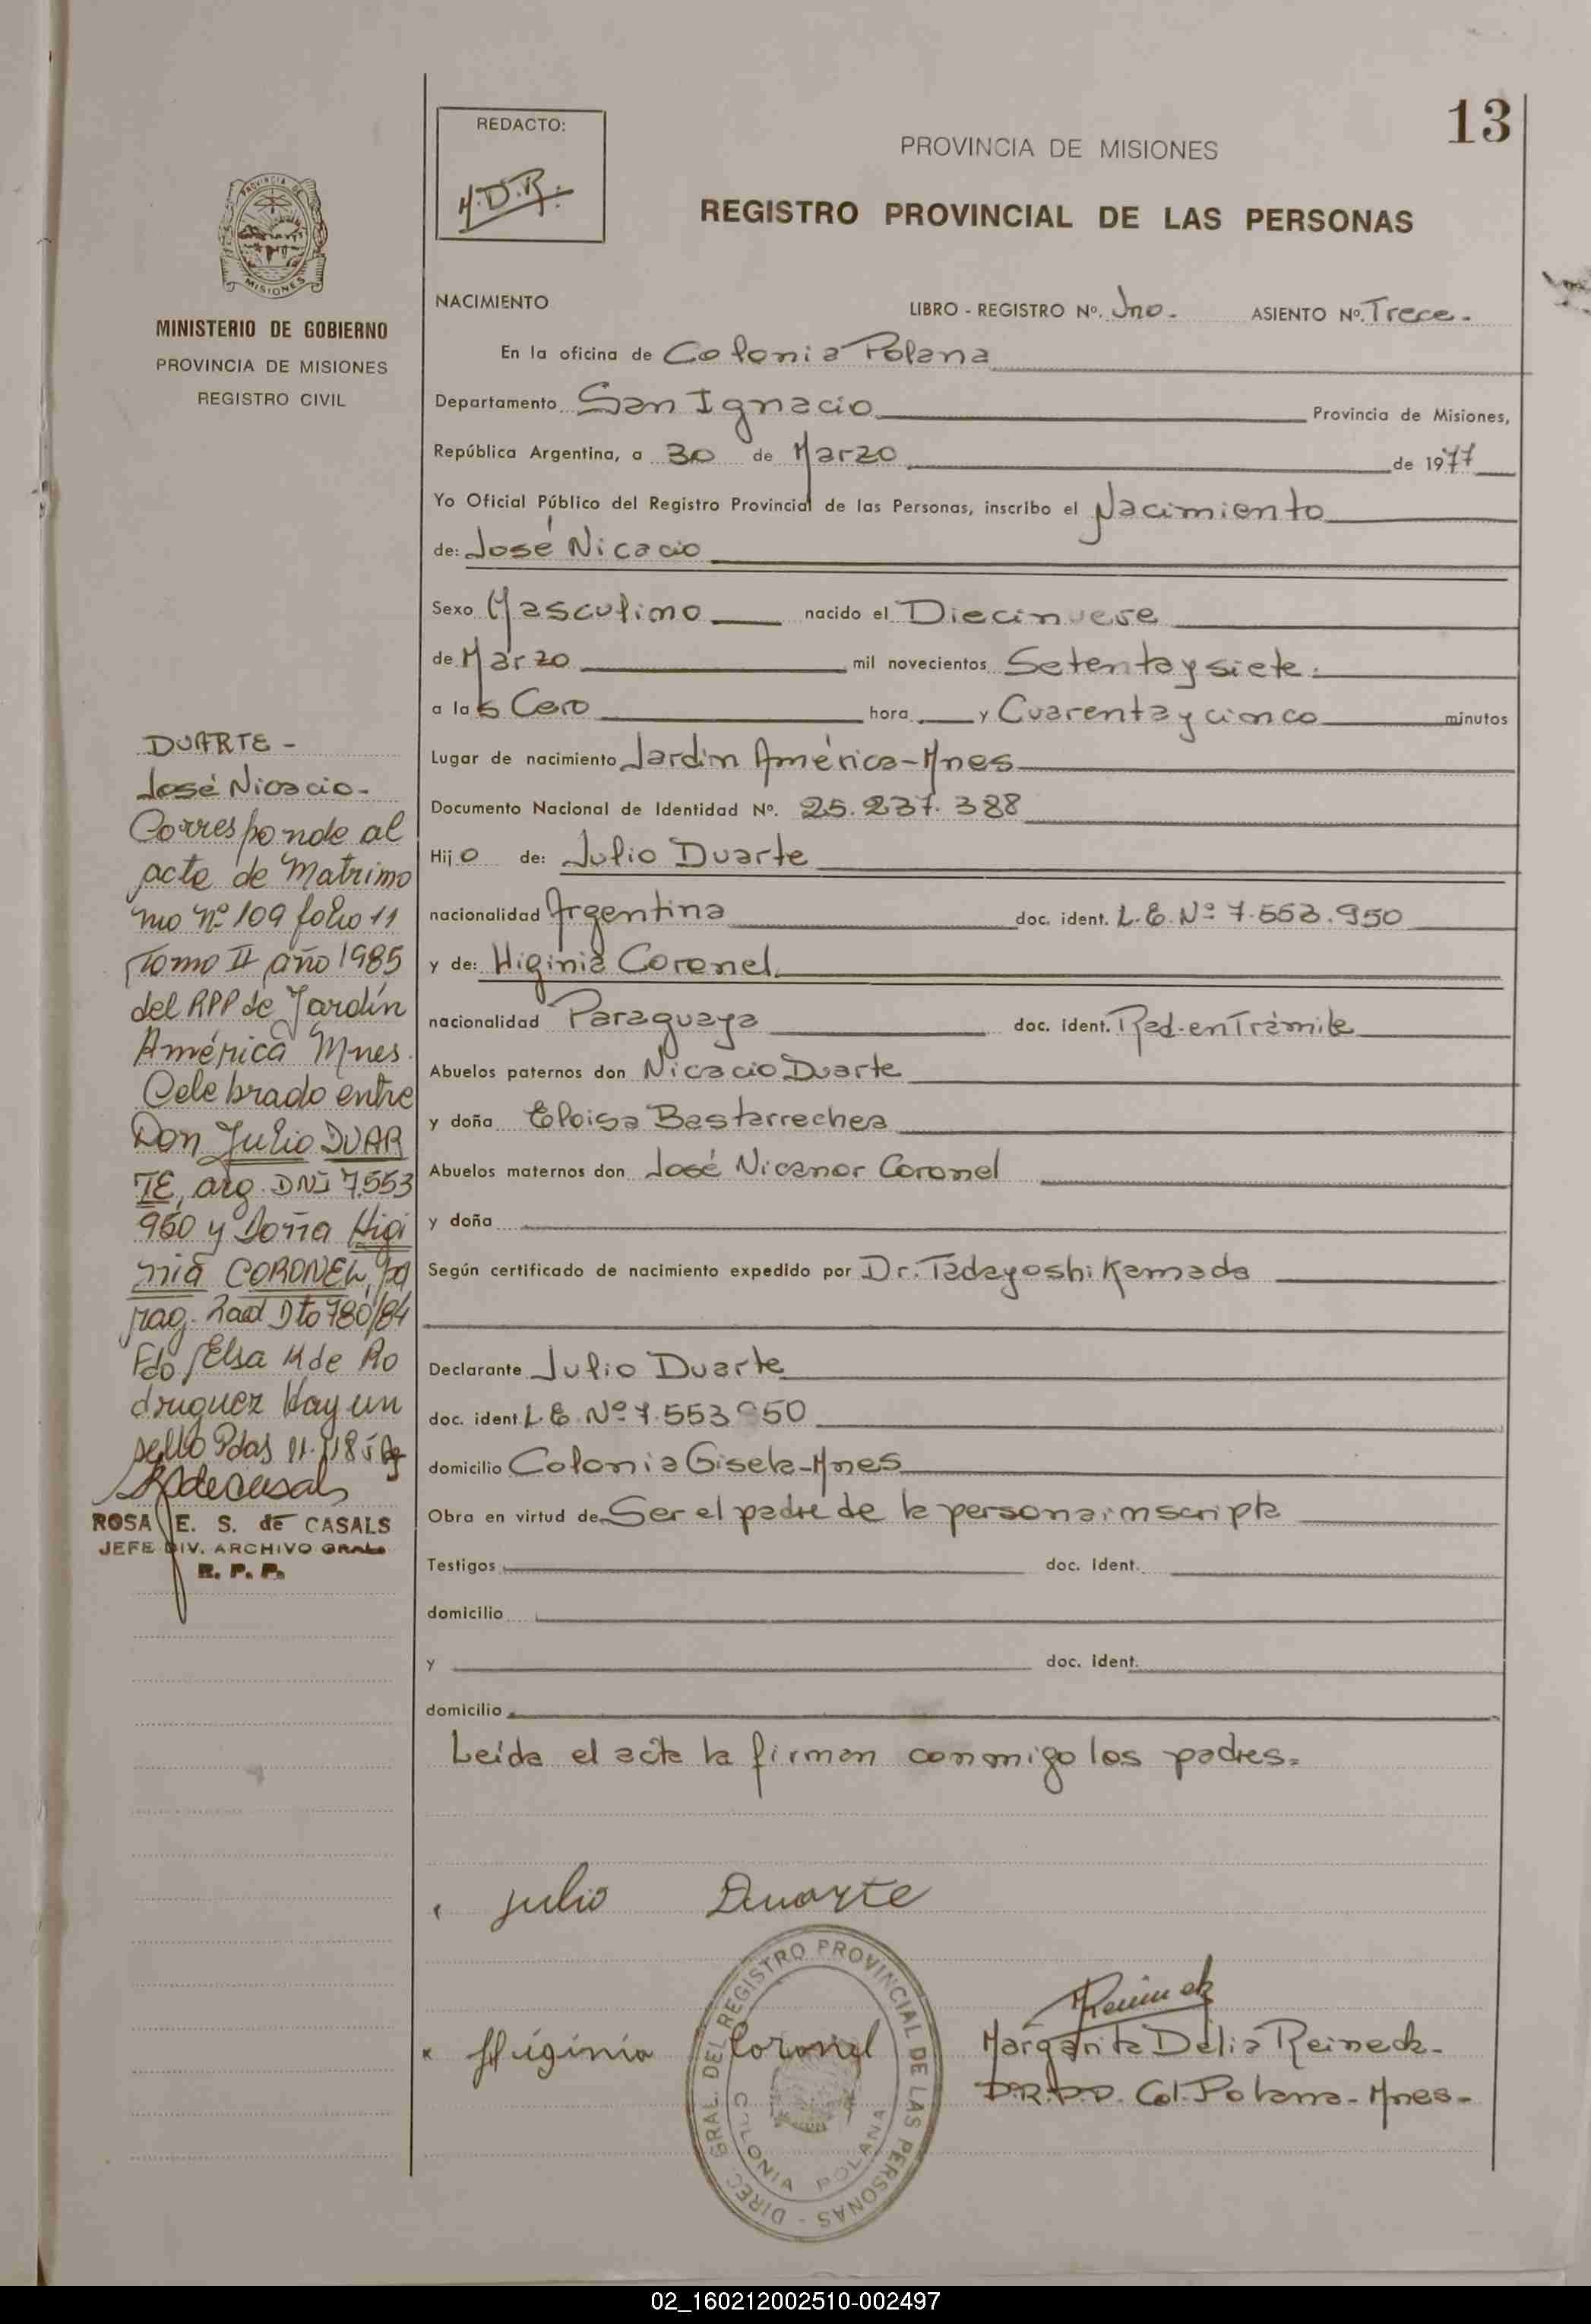 13
REDACTO:
M.D.R.
PROVINCIA DE MISIONES
REGISTRO PROVINCIAL DE LAS PERSONAS
PROVINCIA DE
MISIONES
MINISTERIO DE GOBIERNO
PROVINCIA DE MISIONES
REGISTRO CIVIL
NACIMIENTO LIBRO - REGISTRO Nº. Uno. ASIENTO Nº. Trece.
En la oficina de Colonia Polana
Departamento San Ignacio Provincia de Misiones,
República Argentina, a 30 de Marzo de 1977
Yo Oficial Público del Registro Provincial de las Personas, inscribo el Nacimiento
de: José Nicacio
Sexo Masculino nacido el Diecinueve
de Marzo mil novecientos Setenta y siete.
a las Cero hora y Cuarenta y cinco minutos
Lugar de nacimiento Jardin América-Mnes
Documento Nacional de Identidad Nº. 25.237.388
Hijo de: Julio Duarte
nacionalidad Argentina doc. ident. L.E. Nº 7.553.950
y de: Higinia Coronel
nacionalidad Paraguaya doc. ident. Rad-en Trámite
Abuelos paternos don Nicacio Duarte
y doña Eloisa Bastarrechea
Abuelos maternos don José Nicanor Coronel
y doña
Según certificado de nacimiento expedido por Dr. Tadayoshi Kamada
Declarante Julio Duarte
doc. ident. L.E. Nº 7.553950
domicilio Colonia Gisela-Mnes
Obra en virtud de Ser el padre de la persona inscripta
Testigos doc. ident.
domicilio
y doc. ident.
domicilio
Leída el acta la firman conmigo los padres.
DUARTE -
José Nicacio-
Corresponde al
acta de Matrimo
nio nº 109 folio 11
Tomo II año 1985
del RPP de Jardín
América Mnes.
Celebrado entre
Don Julio DUAR
TE, arg. DNI 7.553
950 y Doña Higi
nia CORONEL, pa
rag. Rad Dto 780/84
Fdo Elsa K de Ro
driguez Hay un
sello Pdas
ROSA E. S. de CASALS
JEFE DIV. ARCHIVO GRAL
R. P. P.
Julio Duarte
Higinia Coronel
DIREC. GRAL. DEL REGISTRO PROVINCIAL DE LAS PERSONAS -
COLONIA POLANA
Reineck
Margarita Delia Reineck-
D.R.P.P. Col. Polana-Mnes-
02_160212002510-002497